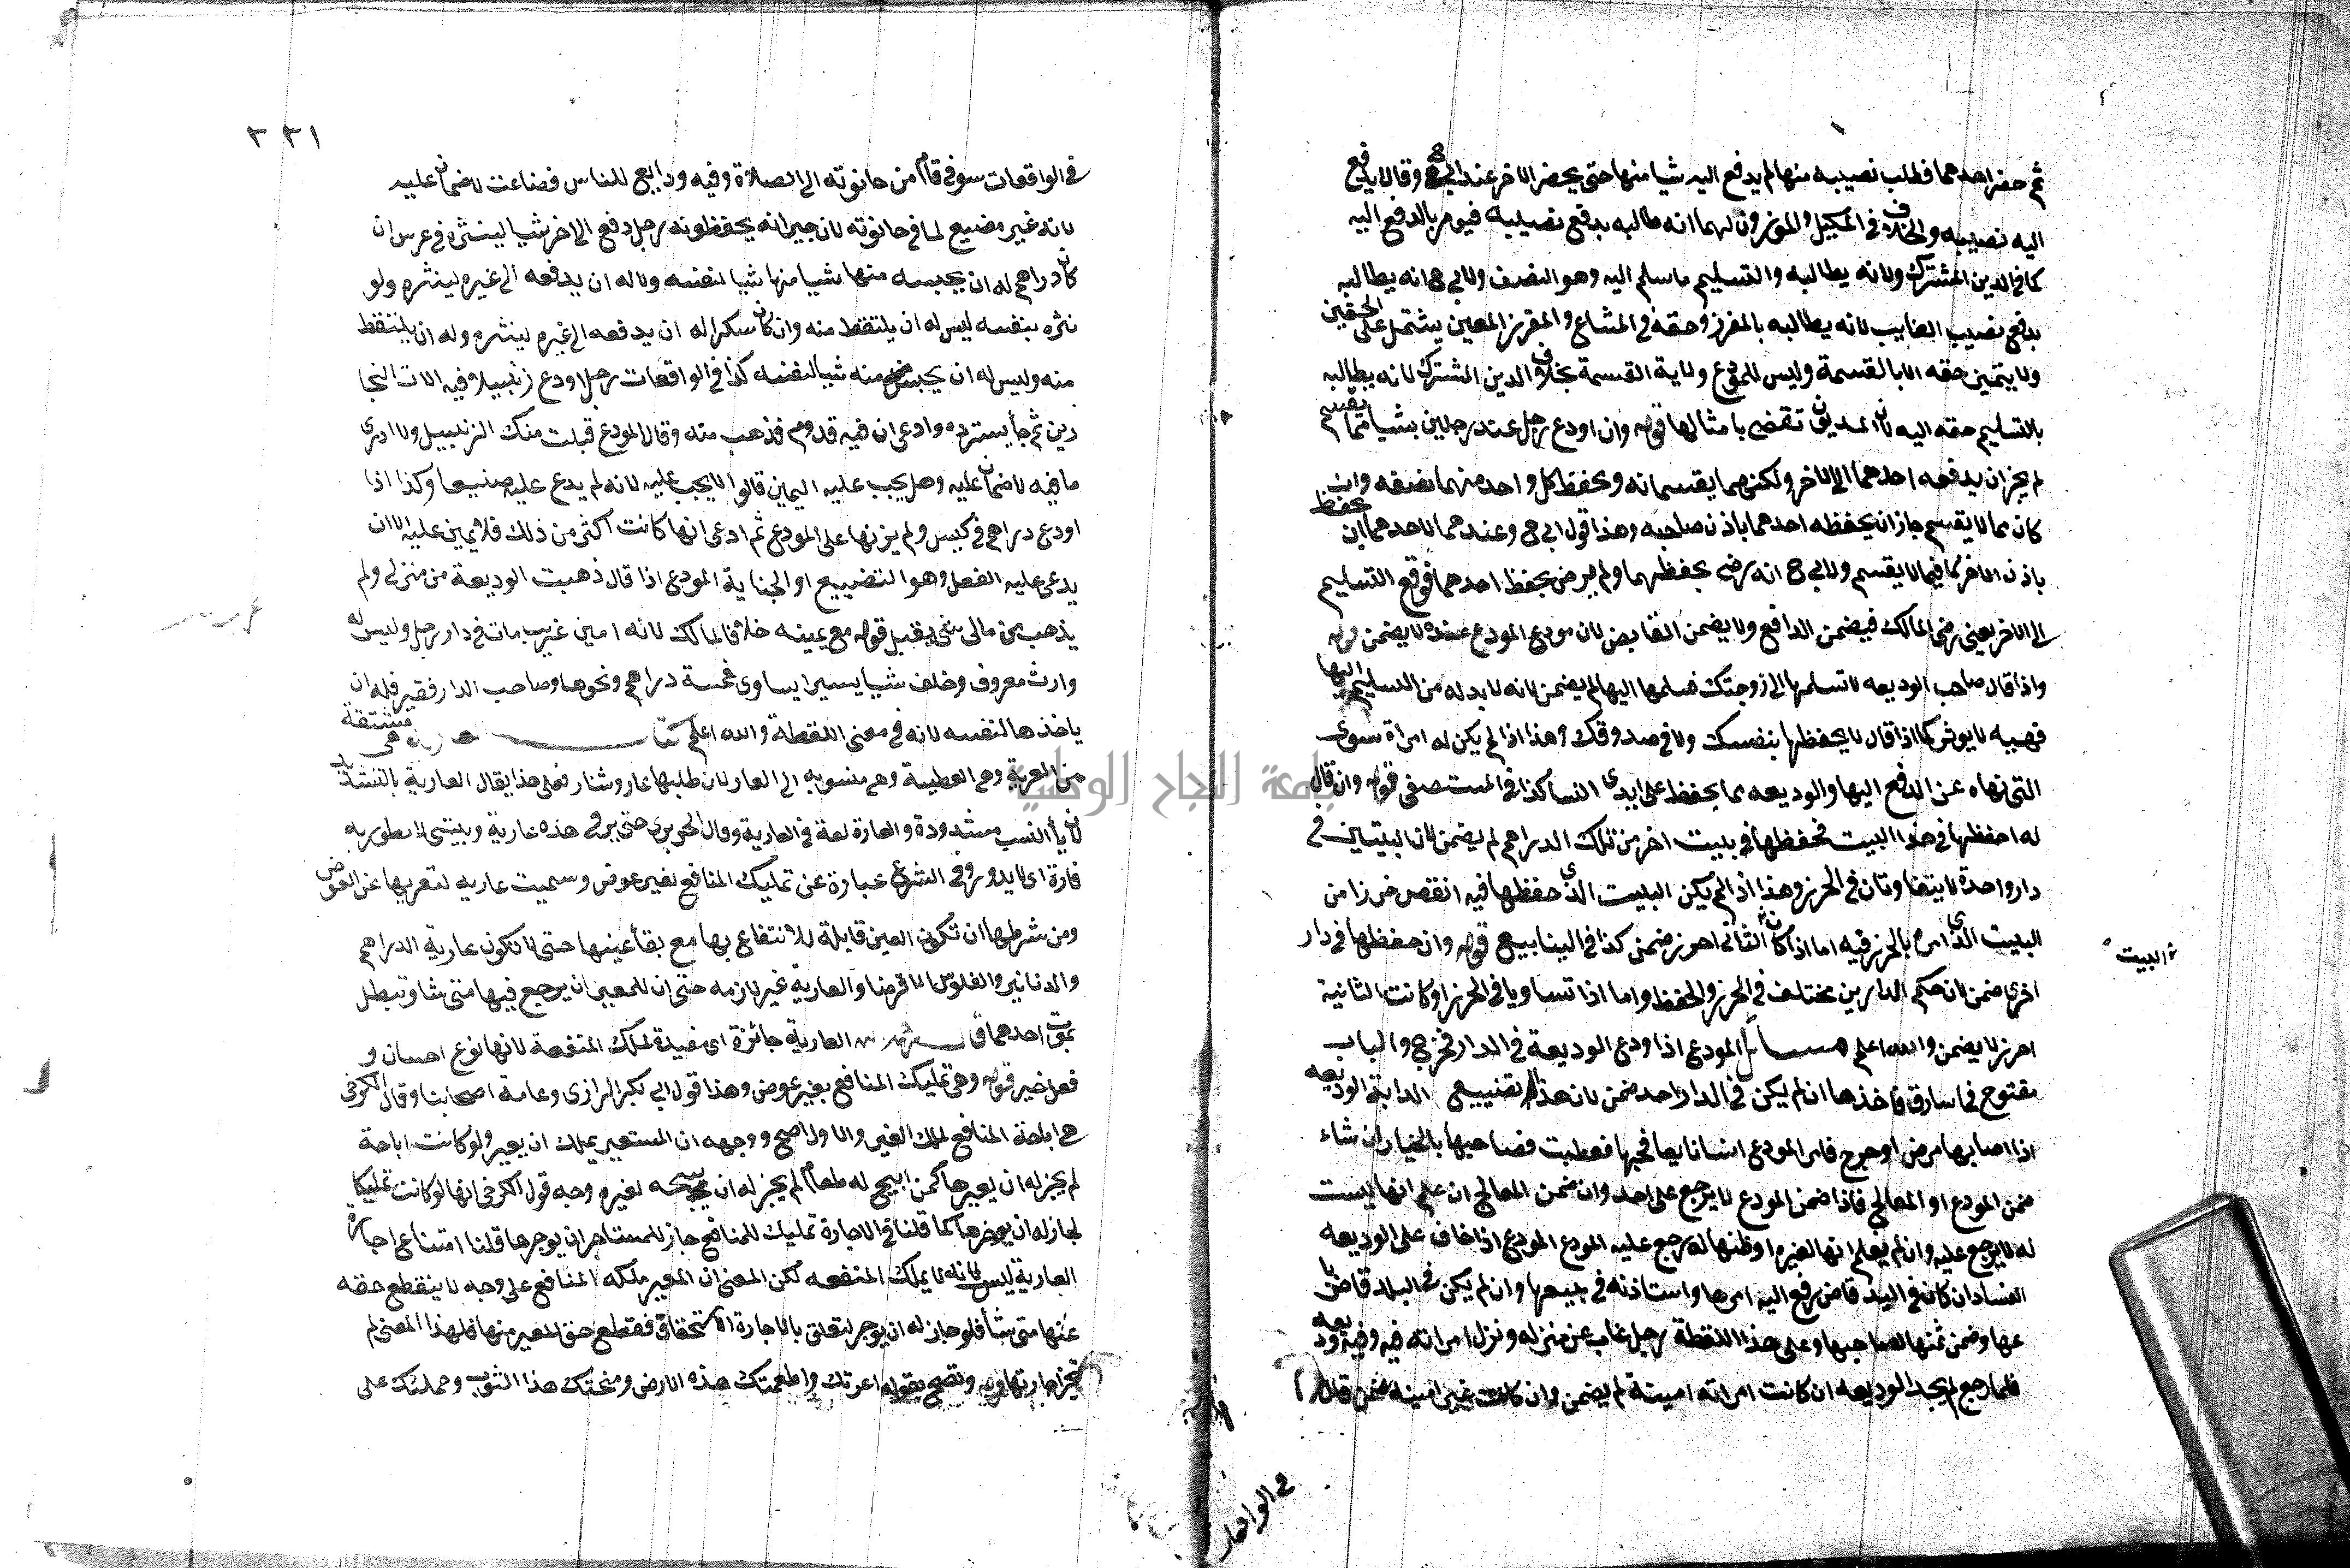 ثم حضر احدهما فطلب نصيبه منها لم يدفع اليه شيا منها حتى يحضر الاخر عند ابي ح وقالا يدفع
اليه نصيبه والخلاف في المكيل والموزون لهما انه طالبه بدفع نصيبه فيومر بالدفع اليه
كما في الدين المشترك ولانه يطالبه والتسليم ما سلم اليه وهو النصف ولابي ح انه يطالبه
بدفع نصيب الغايب لانه يطالبه بالمفرز وحقه في المشاع والمفرز المعين يشتمل على الحقين
ولا يتميز حقه الا بالقسمة وليس للمودع ولاية القسمة بخلاف الدين المشترك لانه يطالبه
بالتسليم حقه اليه لان المديون تقضى بامثالها قوله وان اودع رجل عند رجلين شيا مما يقسم
لم يجز ان يدفعه احدهما الى الاخر ولكنهما يقسمانه ويحفظ كل واحد منهما نصفه وان
كان مما لا يقسم جاز ان يحفظه احدهما باذن صاحبه وهذا قول ابي ح وعندهما لاحدهما ان يحفظ
باذن الاخر كما فيما لا يقسم ولابي ح انه رضي بحفظهما ولم يرض بحفظ احدهما فوقع التسليم
الى الاخر بغير رضى المالك فيضمن الدافع ولا يضمن القابض لان مودع المودع عنده لا يضمن قوله
واذا قال صاحب الوديعه لا تسلمها الى زوجتك فسلمها اليها لم يضمن لانه لا بد له من التسليم اليها
فهيه لا يوثر كما اذا قال لا يحفظها بنفسك ولا في صندوقك وهذا اذا لم يكن له امراة سوى
التي نهاه عن الدفع اليها والوديعه مما يحفظ على ايدى النسا كذا في المستصفى قوله وان قال
له احفظها في هذا البيت فحفظها في بيت اخر من تلك الدراهم لم يضمن لان البيتين في
دار واحدة لا يتفاوتان في الحرز وهذا اذا لم يكن البيت الذي حفظها فيه انقص حرزا من
البيت الذي امره بالحرز فيه اما اذا كان الثاني احرز ضمن كذا في الينابيع قوله وان حفظها في دار
البيت
اخرى ضمن لان حكم الدارين مختلف في الحرز والحفظ واما اذا تساويا في الحرز او كانت الثانية
احرز لا يضمن والله اعلم مسائل المودع اذا ودع الوديعة في الدار فخرج والباب
مفتوح فجا سارق فاخذها ان لم يكن في الدار احد ضمن لان هذا تضييع الدابة الوديعه
اذا اصابها مرض او جرح فامر المودع انسانا يعالجها فعطبت فصاحبها بالخيار ان شاء
ضمن المودع او المعالج فاذا ضمن المودع لا يرجع على احد وان ضمن المعالج ان علم انها ليست
له لا يرجع عليه وان لم يعلم انها لغيره او ظنها له رجع عليه المودع المودع اذا خاف على الوديعه
الفساد ان كان في البلد قاض رفع اليه امرها واستاذنه في بيعها وان لم يكن في البلد قاض با
عها وضمن ثمنها لصاحبها وعلى هذا اللقطة رجل غاب عن منزله ونزل امراته فيه وفيه وديعه
فلما رجع لم يجد الوديعه ان كانت امراته امينة لم يضمن وان كانت غير امينة ضمن قال
في الواقعات
٣٣١
في الواقعات سوقي قام من حانوته الى الصلاة وفيه ودايع للناس فضاعت لا ضمان عليه
لانه غير مضيع لما في حانوته لان جيرانه يحفظونه رجل دفع الى اخر شيا لينثره في عرس ان
كان دراهم له ان يحبسه منها شيا منها شيا لنفسه ولا له ان يدفعه الى غيره لينثره ولو
نثره بنفسه ليس له ان يلتقط منه وان كان سكرا له ان يدفعه الى غيره لينثره وله ان يلتقط
منه وليس له ان يحبس منه شيا لنفسه كذا في الواقعات رجل اودع زنبيلا وفيه الات النجا
رين ثم جا يسترده وادعى ان فيه قدوم فذهب منه وقال المودع قبلت منك الزنبيل ولا ادرى
ما فيه لا ضمان عليه وهل يجب عليه اليمين قالوا لا يجب عليه لانه لم يدع عليه صنيعا وكذا اذا
اودع دراهم في كيس ولم يزنها على المودع ثم ادعى انها كانت اكثر من ذلك فلا يمين عليه الا ان
يدعى عليه الفعل وهو التضييع او الجناية المودع اذا قال ذهبت الوديعة من منزلي ولم
يذهب من مالي شي يقبل قوله مع يمينه خلافا لمالك لانه امين غريب مات في دار رجل وليس له
وارث معروف وخلف شيا يسيرا يساوى خمسة دراهم ونحوها وصاحب الدار فقير فله ان
ياخذها لنفسه لانه في معنى اللقطة والله اعلم كتاب العارية هي مشتقة
من العرية وهي العطية وهم منسوبه الى العار لان طلبها عار وشنار فعلى هذا يقال العارية بالتشديد
لان يا النسب مشدودة والعارة لغة في العارية وقال الحريري حتى يرى في هذه عارية وبيتى لا يطور به
فارة اى لا يدور وفي الشرع عبارة عن تمليك المنافع بغير عوض وسميت عاريه لتعريها عن العوض
ومن شرطها ان تكون العين قابلة للانتفاع بها مع بقا عينها حتى لا تكون عارية الدراهم
والدنانير والفلوس الا قرضا والعارية غير لازمه حتى ان للمعير ان يرجع فيها متى شا وتبطل
بموت احدهما قال العارية جائزة اى مفيدة لملك المنفعة لانها نوع احسان و
فعل خير قوله وهي تمليك المنافع بغير عوض وهذا قول ابي بكر الرازى وعامة اصحابنا وقال الكرخي
هي اباحة المنافع لملك الغير والاول اصح ووجهه ان المستعير يملك ان يعير ولو كانت اباحة
لم يجز له ان يعيرها كمن ابيح له طعام لم يجز له ان يبيحه لغيره وجه قول الكرخي انها لو كانت تمليكا
لجاز له ان يوجرها كما قلنا في الاجارة تمليك للمنافع جاز للمستاجر ان يوجرها قلنا امتناع اجاره
العارية ليس لانه لا يملك المنفعه لكن المعنى ان المعير ملكه المنافع على وجه لا ينقطع حقه
عنها متى شا فلو جاز له ان يوجر لتعلق بالاجارة الاستحقاق فقطع حق المعير منها فلهذا المعنى لم
تجز اجارتها قوله وتصح بقوله اعرتك واطعمتك هذه الارض ومنحتك هذا الثوب وحملتك على
جامعة النجاح الوطنية